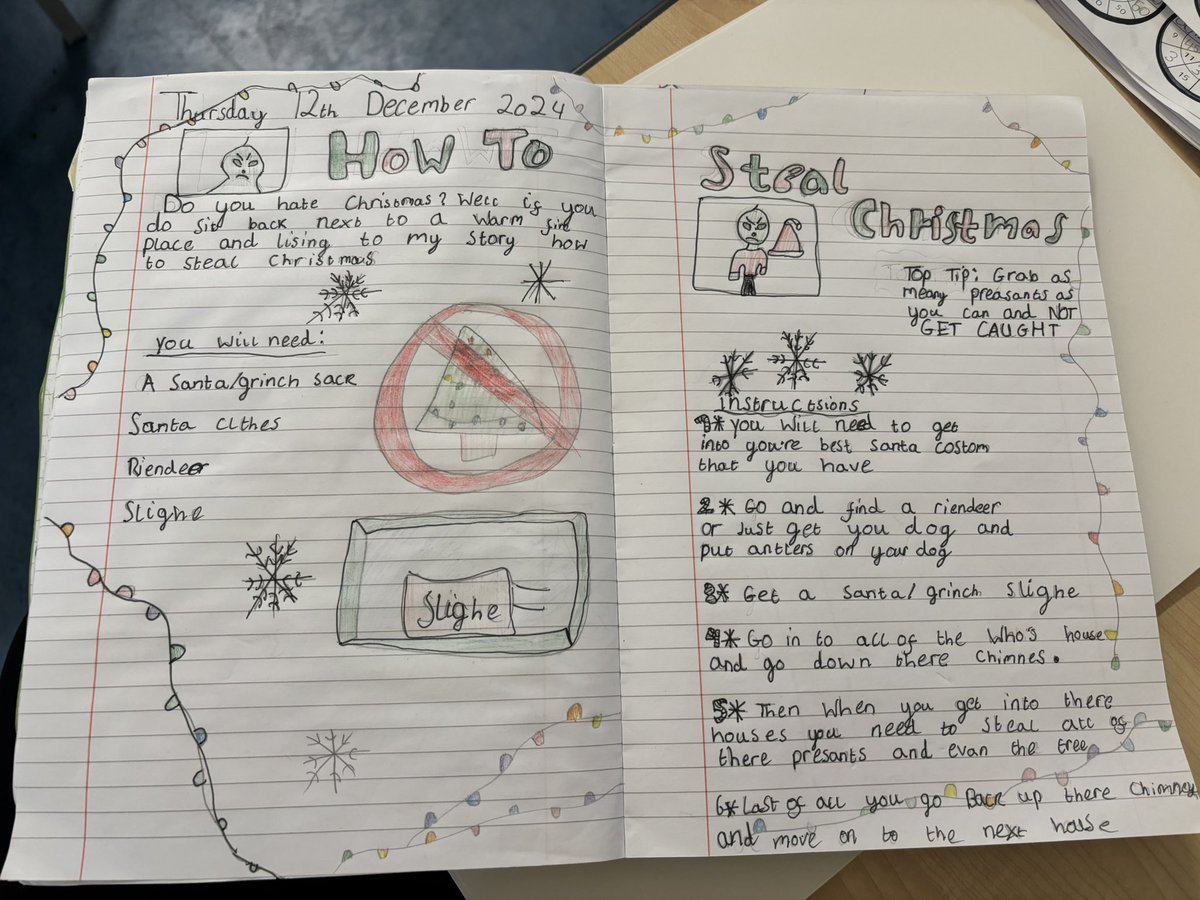 Thursday 12th December 2024
How To
Do you hate Christmas? Well if you
do sit back next to a warm fire
place and lising to my story how
to steal Christmas
you will need:
A Santa/grinch sack
Santa clthes
Riendeer
Slighe
Slighe
Steal
Christmas
Top Tip: Grab as
meany preasants as
you can and NOT
GET CAUGHT
instructsions
1* you will need to get
into you're best santa costom
that you have
2* Go and find a riendeer
or Just get you dog and
put antlers on your dog
3* Get a Santa/grinch slighe
4* Go in to all of the Who's house
and go down there chimnes.
5* Then when you get into there
houses you need to steal all of
there presants and evan the tree
6* Last of all you go Back up there chimney
and move on to the next house